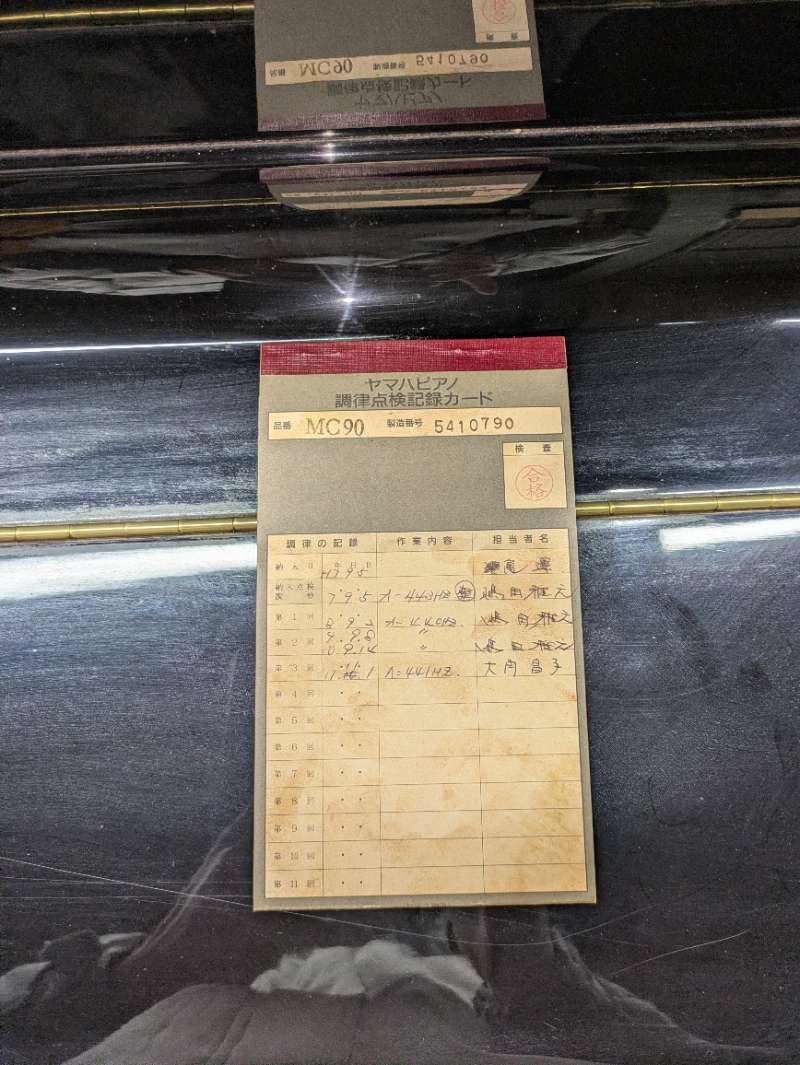 ヤマハピアノ
調律点検記録カード
品番 MC90 製造番号 5410790
検査
合格
調律の記録 作業内容 担当者名
納入日 年月日 H7 9 5
納入点検 7.9.5 A-443HZ
第1回 8.9.2 A-440HZ.
9.9.8 〃
第2回 10.9.14 〃
第3回 A=441HZ. 大角昌子
第4回 ・・
第5回 ・・
第6回 ・・
第7回 ・・
第8回 ・・
第9回 ・・
第10回 ・・
第11回 ・・